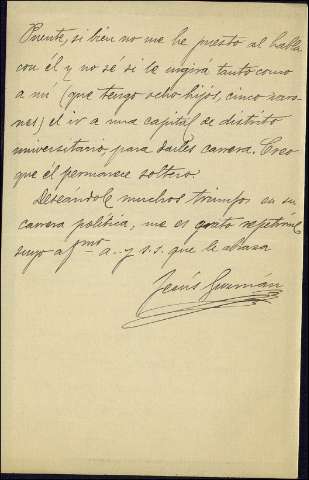 Puente, si bien no me he puesto al habla
con él y no sé si le urgirá tanto como
a mi (que tengo ocho hijos, cinco varo-
nes) el ir a una capital de distrito
universitario para darles carrera. Creo
que él permanece soltero.
Deseándole muchos triunfos en su
carrera política, me es grato repetirme
suyo afmo. a. y s.s. que le abraza
Jesús Guzmán